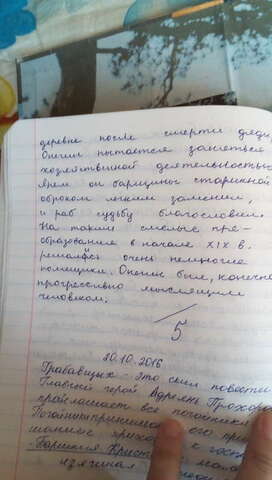 деревне после смерти дяди,
Онегин пытается заняться
хозяйственной деятельностью
Ярем он барщины старинной
оброком легким заменил,
и раб судьбу благословил.
На такие смелые пре-
образования в начале XIX в.
решались очень немногие
помещики. Онегин был, конечно
прогрессивно мыслящим
человеком.
5
30.10.2016
- это
Главный герой Адриян Прохоров
приглашает все
его
к